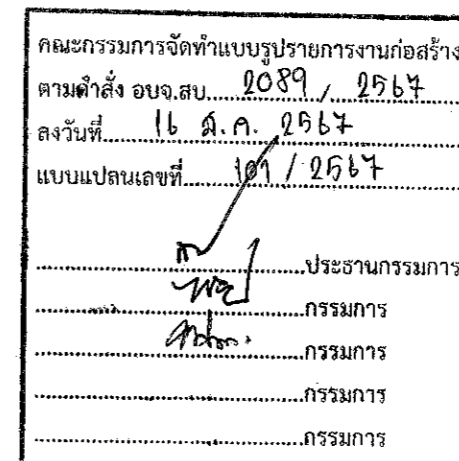 คณะกรรมการจัดทำแบบรูปรายการงานก่อสร้าง
ตามคำสั่ง อบจ.สบ. 2089 / 2567
ลงวันที่ 16 ส.ค. 2567
แบบแปลนเลขที่ 101 / 2567
ประธานกรรมการ
กรรมการ
กรรมการ
กรรมการ
กรรมการ